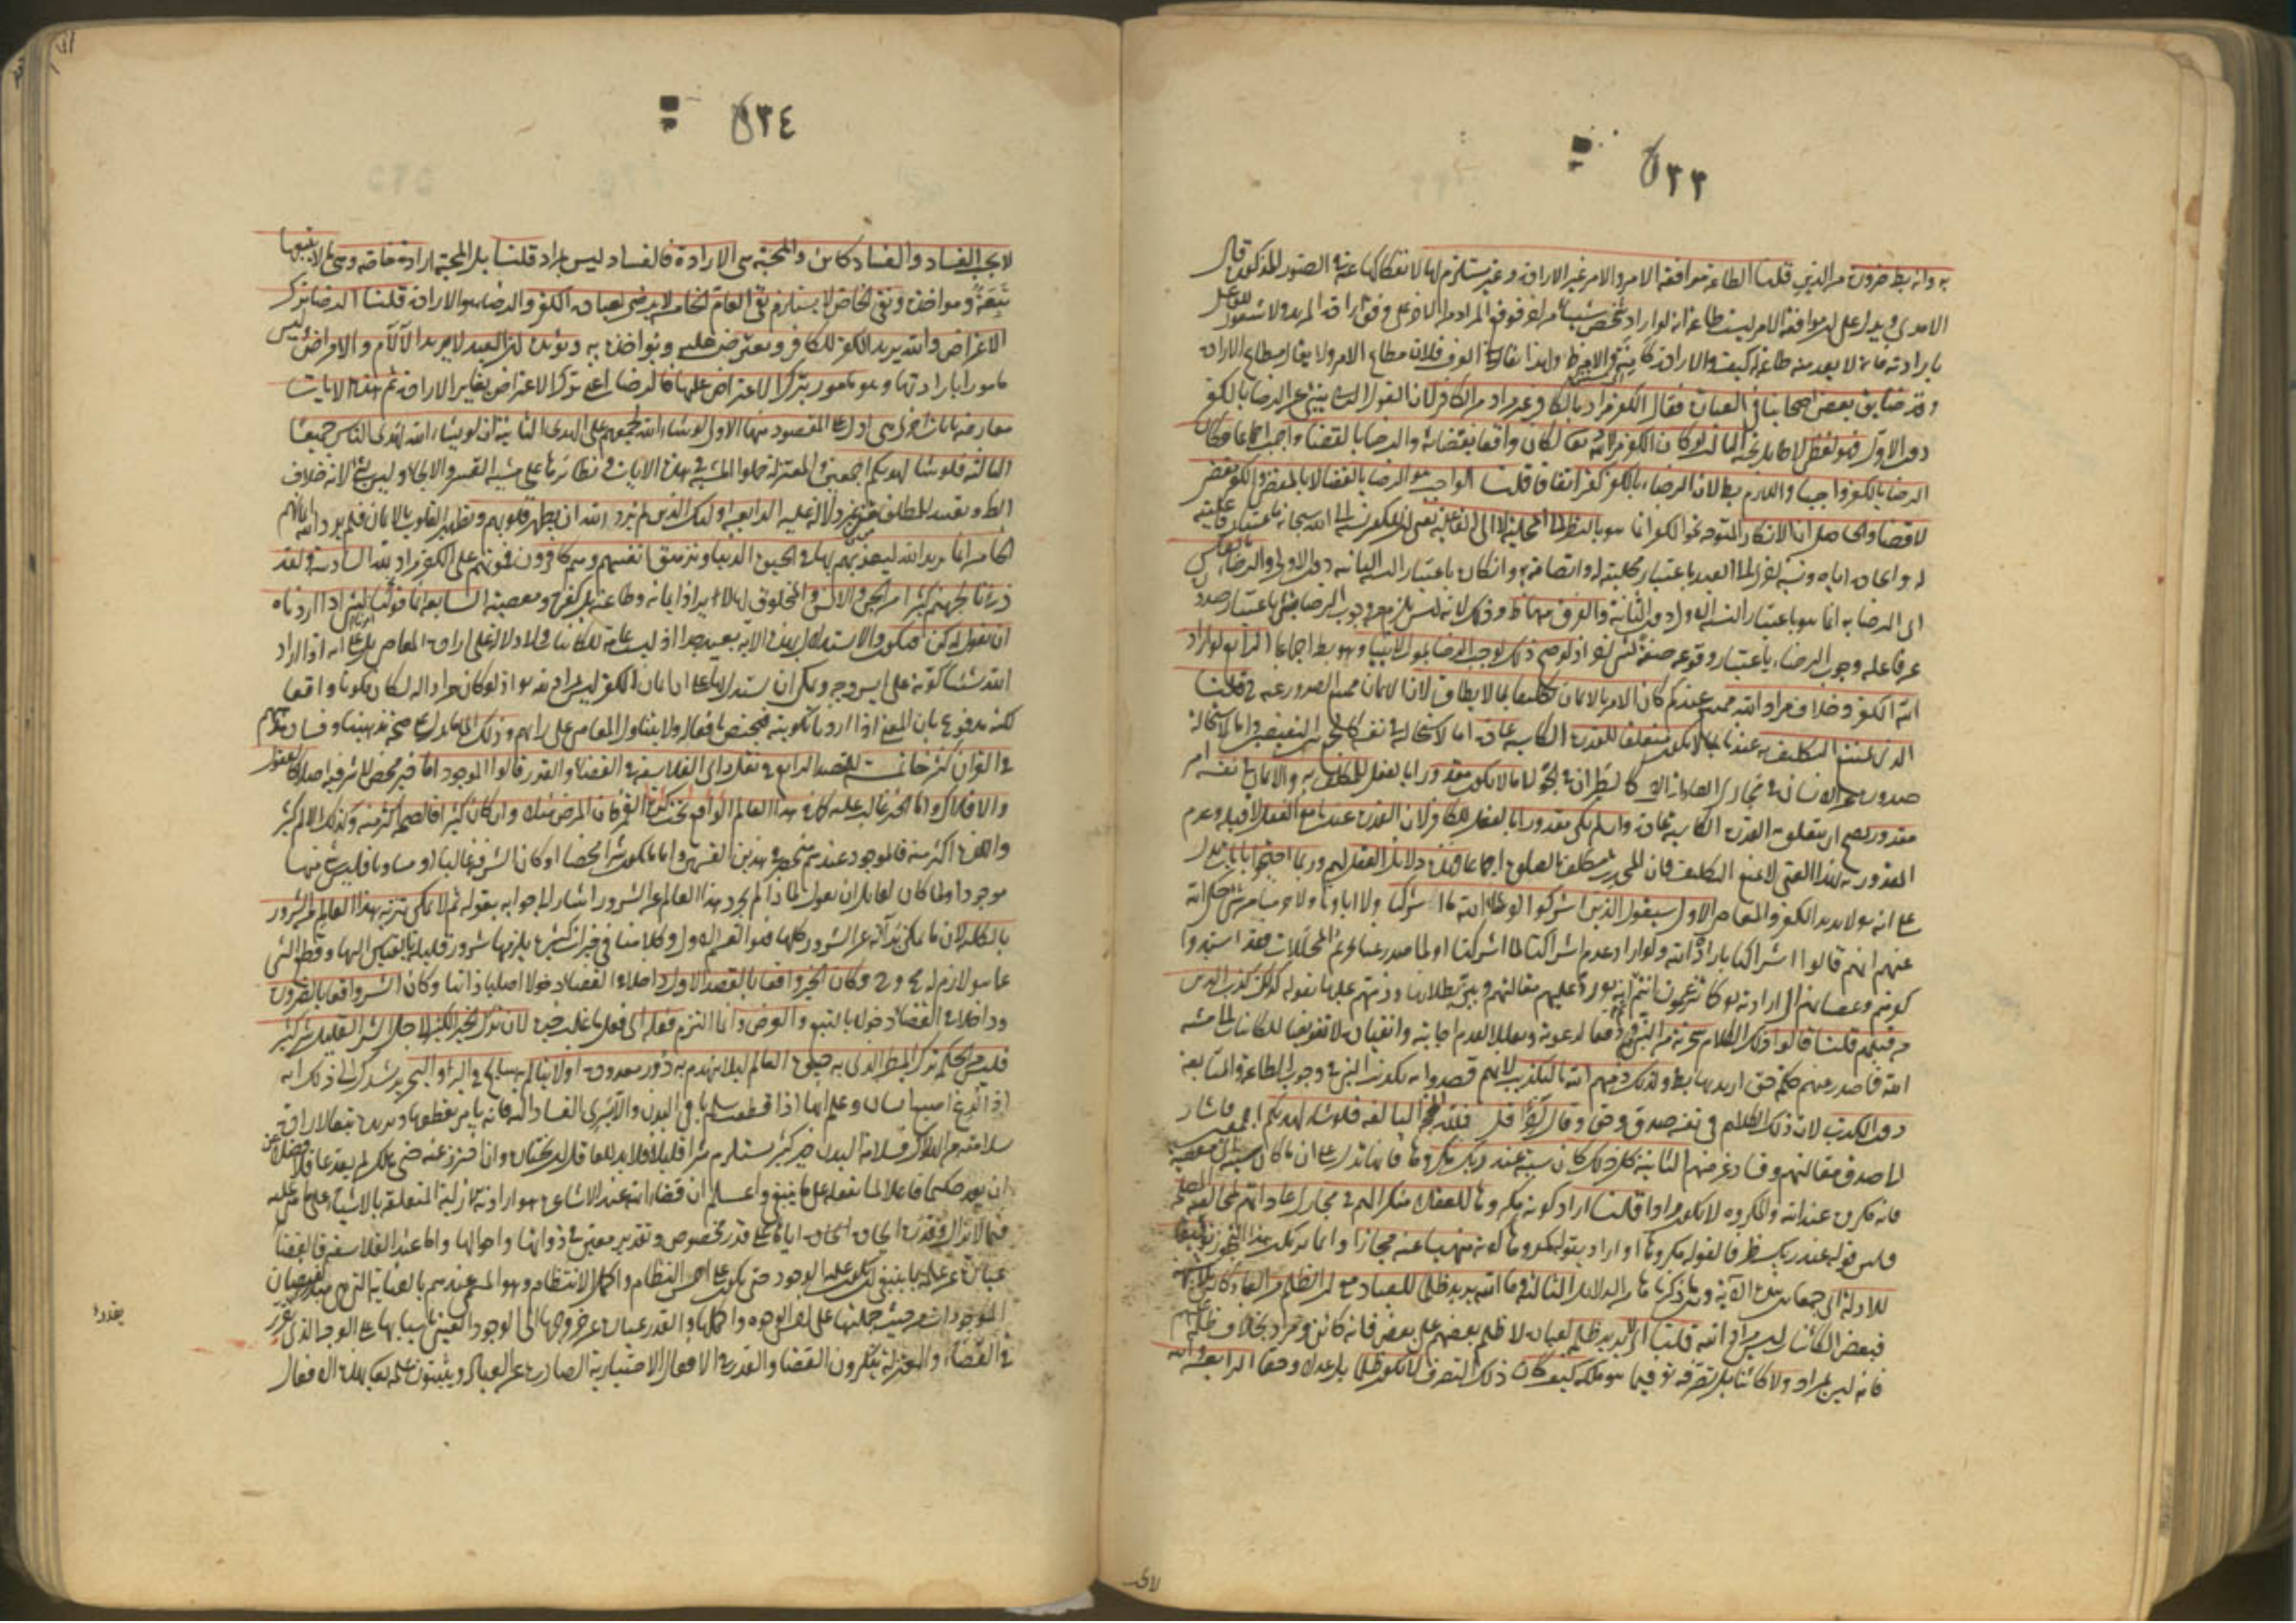 ٥٣٣
به وانه بط ضرورة من الدين قلنا الطاعة موافقة الامر والامر غير الارادة وغير مستلزم لها لانفكاكها عنه في الصور المذكورة قال
الامدي ويدل على ان موافقة الارادة ليست طاعة انه لو اراد شخص شيئا من اخر فوقع المراد من الاخر على وفق ارادة المريد ولا شعور للفاعل
بارادته فانه لا يعد منه طاعة له كيف والارادة كامنة والامر ظ ولهذا يقال في العرف فلان مطاع الامر ولا يقال مطاع الارادة
وقد ضايق بعض اصحابنا في العبارة فقال الكفر مراد بالكافر غير مراد من الكافر لان القول الثاني ينبئ عن الرضا بالكفر
دون الاول وهو لفظي لا طائل تحته الثالث لو كان الكفر مرادا لله تعالى لكان واقعا بقضائه والرضا بالقضاء واجب اجماعا فكان
الرضا بالكفر واجبا واللازم بطلان الرضاء بالكفر كفر اتفاقا قلنا الواجب هو الرضا بالقضاء لا بالمقضي والكفر مقضي
لا قضاء والحاصل ان الانكار المتوجه نحو الكفر انما هو بالنظر الى المحلية لا الى الفاعلية يعني ان للكفر نسبة الى الله سبحانه باعتبار فاعليته
له وايجاده اياه ونسبة اخرى الى العبد باعتبار محليته له واتصافه به وانكاره باعتبار النسبة الثانية دون الاولى والرضاء بالعكس
اى الرضا به انما هو باعتبار النسبة الاولى دون الثانية والفرق بينهما ظ وذلك لانه ليس يلزم من وجوب الرضا بشئ باعتبار صدوره
عن فاعله وجوب الرضاء باعتبار وقوعه صفة لشئ اخر اذ لو صح ذلك لوجب الرضا بموت الانبياء وهو بط اجماعا الرابع لو اراد
الله الكفر وخلاف مراد الله ممتنع عندكم كان الامر بالايمان تكليفا بما لا يطاق لان الايمان ممتنع الصدور عنه ح قلنا
الذي يمتنع التكليف به عندنا ما لا يكون متعلقا للقدرة الكاسبة عادة اما لاستحالته في نفسه كالجمع بين النقيضين واما لاستحالة
صدوره عن الانسان في مجاري العادات كالطيران في الجو لا ما لا يكون مقدورا بالفعل للمكلف به والايمان في نفسه امر
مقدور يصح ان يتعلق به القدرة الكاسبة عادة وان لم يكن مقدورا بالفعل للكافر لان القدرة عندنا مع الفعل لا قبله وعدم
المقدورية بهذا المعنى لا يمنع التكليف فان المحدث مكلف بالصلوة اجماعا فهذه دلائل العقل لهم وربما احتجوا بايات تدل
على انه لا يريد الكفر والمعاصي الاولى سيقول الذين اشركوا لو شاء الله ما اشركنا ولا اباؤنا ولا حرمنا من شئ حكى الله
عنهم انهم قالوا اشراكنا بارادة الله ولو اراد عدم اشراكنا لما اشركنا ولما صدر عنا تحريم المحللات فقد اسندوا
كفرهم وعصيانهم الى ارادته كما تزعمون انتم ثم انه رد عليهم مقالتهم وبين بطلانها وذمهم عليها بقوله كذلك كذب الذين
من قبلهم قلنا قالوا ذلك الكلام سخرية من النبي ودفعا لدعوته وتعللا لعدم اجابته وانقياده لا تفويضا للكائنات الى مشية
الله فما صدر عنهم كلمة حق اريد بها بط ولذلك ذمهم الله بالتكذيب لانهم قصدوا به تكذيب النبي في وجوب الطاعة والمتابعة
دون الكذب لان ذلك الكلام في نفسه صدق وحق وقال آخرا قل فلله الحجة البالغة فلو شاء لهديكم اجمعين فاشار
الى صدق مقالتهم وفساد غرضهم الثانية كل ذلك كان سيئه عند ربك مكروها فانها تدل على ان ما كان سيئة اى معصية
فانه مكروه عند الله والمكروه لا يكون مرادا قلنا اراد كونه مكروها للعقلاء منكرا لهم في مجاري عاداتهم لمخالفته المصلحة
فليس قوله عند ربك ظرفا لقوله مكروها او اراد بقوله مكروها كونه منهيا عنه مجازا وانما يرتكب هذا التجوز توفيقا
للادلة اى جمعا بين هذه الآية وبين ما ذكرنا من الدلائل الثالثة وما الله يريد ظلما للعباد مع ان الظلم من العباد كائن بلا شبهة
فبعض الكائنات ليس بمراد لله قلنا اى لا يريد ظلمه لعباده لا ظلم بعضهم على بعض فانه كائن ومراد بخلاف ظلمه عليهم
فانه ليس بمراد ولا كائنا بل تصرفه تع فيما هو ملكه كيف كان ذلك التصرف لا يكون ظلما بل عدلا وحقا الرابعة والله
لا يحب
٥٣٤
لا يحب الفساد والفساد كائن والمحبة هي الارادة فالفساد ليس بمراد قلنا بل المحبة ارادة خاصة وهي ما لا يتبعها
تبعة ومواخذة ونفي الخاص لا يستلزم نفي العام الخامسة لا يرضى لعباده الكفر والرضا هو الارادة قلنا الرضا ترك
الاعتراض والله يريد الكفر للكافر ويعترض عليه ويؤاخذه به ويؤيده ان العبد لا يريد الآلام والامراض وليس
مامورا بارادتها وهو مامور بترك الاعتراض عليها فالرضا اعني ترك الاعتراض يغاير الارادة ثم هذه الايات
معارضة بايات اخرى هي ادل على المقصود منها الاولى لو شاء الله لجمعهم على الهدى الثانية ان لو يشاء الله لهدى الناس جميعا
الثالثة فلو شاء لهديكم اجمعين والمعتزلة حملوا المشية في هذه الايات ونظائرها على مشية القسر والالجاء وليس بشئ لانه خلاف
الظ وتقييد للمطلق من غير دلالة عليه الرابعة اولئك الذين لم يرد الله ان يطهر قلوبهم وتطهير القلوب بالايمان فلم يرد الله ايمانهم
الخامسة انما يريد الله ليعذبهم بها في الحيوة الدنيا وتزهق انفسهم وهم كافرون فموتهم على الكفر مراد لله السادسة ولقد
ذرانا لجهنم كثيرا من الجن والانس والمخلوق لها لا يراد ايمانه وطاعته بل كفره ومعصيته السابعة انما قولنا لشئ اذا اردناه
ان نقول له كن فيكون والاستدلال بهذه الاية بعيد جدا اذ ليست عامة للكائنات فلا دلالة على ارادة المعاصي بل على انه اذا اراد
الله شيئا كونه على ايسر وجه ويمكن ان يستدل بها على ان ايمان الكافر ليس بمراد لله تع اذ لو كان مرادا له لكان مكونا واقعا
لكنه مدفوع بان المعنى اذا اردنا تكوينه فيختص بافعاله ولا يتناول المعاصي على رايهم وذلك اى ما يدل على صحة مذهبنا وفساد مذهبهم
في القران كثير خاتمة للمقصد الرابع في نقل راى الفلاسفة في القضاء والقدر قالوا الموجود اما خير محض لا شر فيه اصلا كالعقول
والافلاك واما الخير غالب عليه كما في هذا العالم الواقع تحت كرة القمر فان المرض مثلا وان كان كثيرا فالصحة اكثر منه وكذلك الالم كثير
واللذة اكثر منه فالموجود عندهم منحصر في هذين القسمين واما ما يكون شرا محضا او كان الشر فيه غالبا او مساويا فليس شئ منها
موجودا ولما كان لقائل ان يقول لماذا لم يجرد هذا العالم عن الشرور اشار الى جوابه بقوله ثم لا يمكن تنزيه هذا العالم من الشرور
بالكلية لان ما يمكن براءته عن الشرور كلها فهو القسم الاول وكلامنا في خيرات كثيرة يلزمها شرور قليلة بالقياس اليها وقطع الشئ
عما هو لازم له مح وح فكان الخير واقعا بالقصد الاول داخلا في القضاء دخولا اصليا ذاتيا وكان الشر واقعا بالضرورة
وداخلا في القضاء دخولا بالتبع والعرض وانما التزم فعله اى فعل ما غلب خيره لان ترك الخير الكثير لاجل الشر القليل شر كثير
فليس من الحكمة ترك المطر الذي به حيوة العالم لئلا ينهدم به دور معدودة او لا يتالم سابح في البر او البحر يرشدك الى ذلك انه
اذا لدغ اصبع انسان وعلم انها اذا قطعت سلم باقي البدن والا سرى الفساد اليه فانه يامر بقطعها ويريده تبعا لارادة
سلامته من الهلاك فسلامة البدن خير كثير يستلزم شرا قليلا فلا بد للعاقل ان يختاره وان احترز عنه حتى هلك لم يعد عاقلا فضلا عن
ان يعد حكيما فاعلا لما يفعله على ما ينبغي واعلم ان قضاء الله عند الاشاعرة هو ارادته الازلية المتعلقة بالاشياء على ما هي عليه
فيما لا يزال وقدره ايجاده اياها على قدر مخصوص وتقدير معين في ذواتها واحوالها واما عند الفلاسفة فالقضاء
عبارة عن علمه بما ينبغي ان يكون عليه الوجود حتى يكون على احسن النظام واكمل الانتظام وهو المسمى عندهم بالعناية التي هي مبدء لفيضان
الموجودات من حيث جملتها على احسن الوجوه واكملها والقدر عبارة عن خروجها الى الوجود العيني باسبابها على الوجه الذي تقرر
في القضاء والمعتزلة ينكرون القضاء والقدر في الافعال الاختيارية الصادرة عن العباد ويثبتون علمه تعالى بهذه الافعال